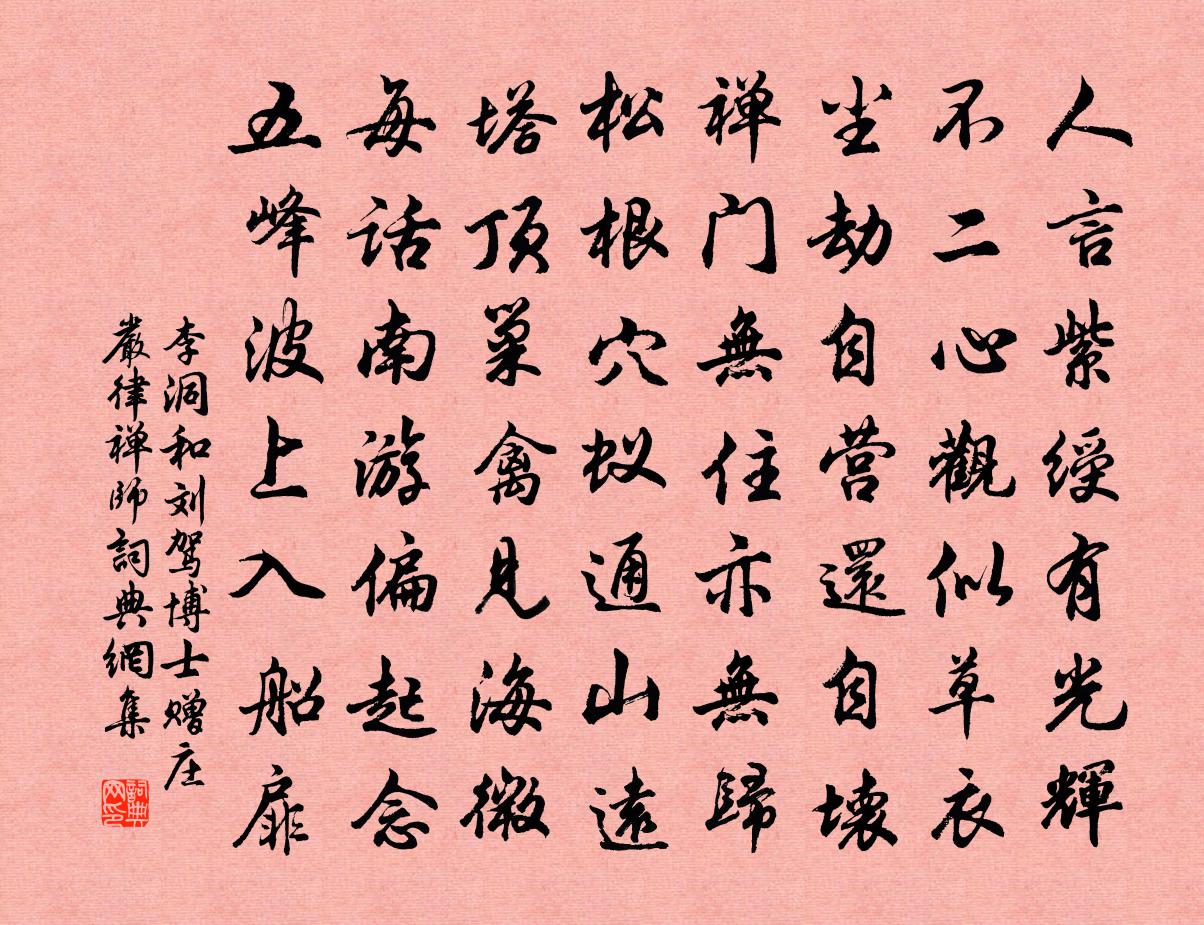 人言紫綬有光輝
不二心觀似草衣
尘劫自营還自壊
禅门無住亦無歸
松根穴蚁通山遠
塔顶巢禽見海微
每话南游偏起念
五峰波上入船扉
李洞和刘驾博士赠庄
嚴律禅師詞典網集
詞典网印